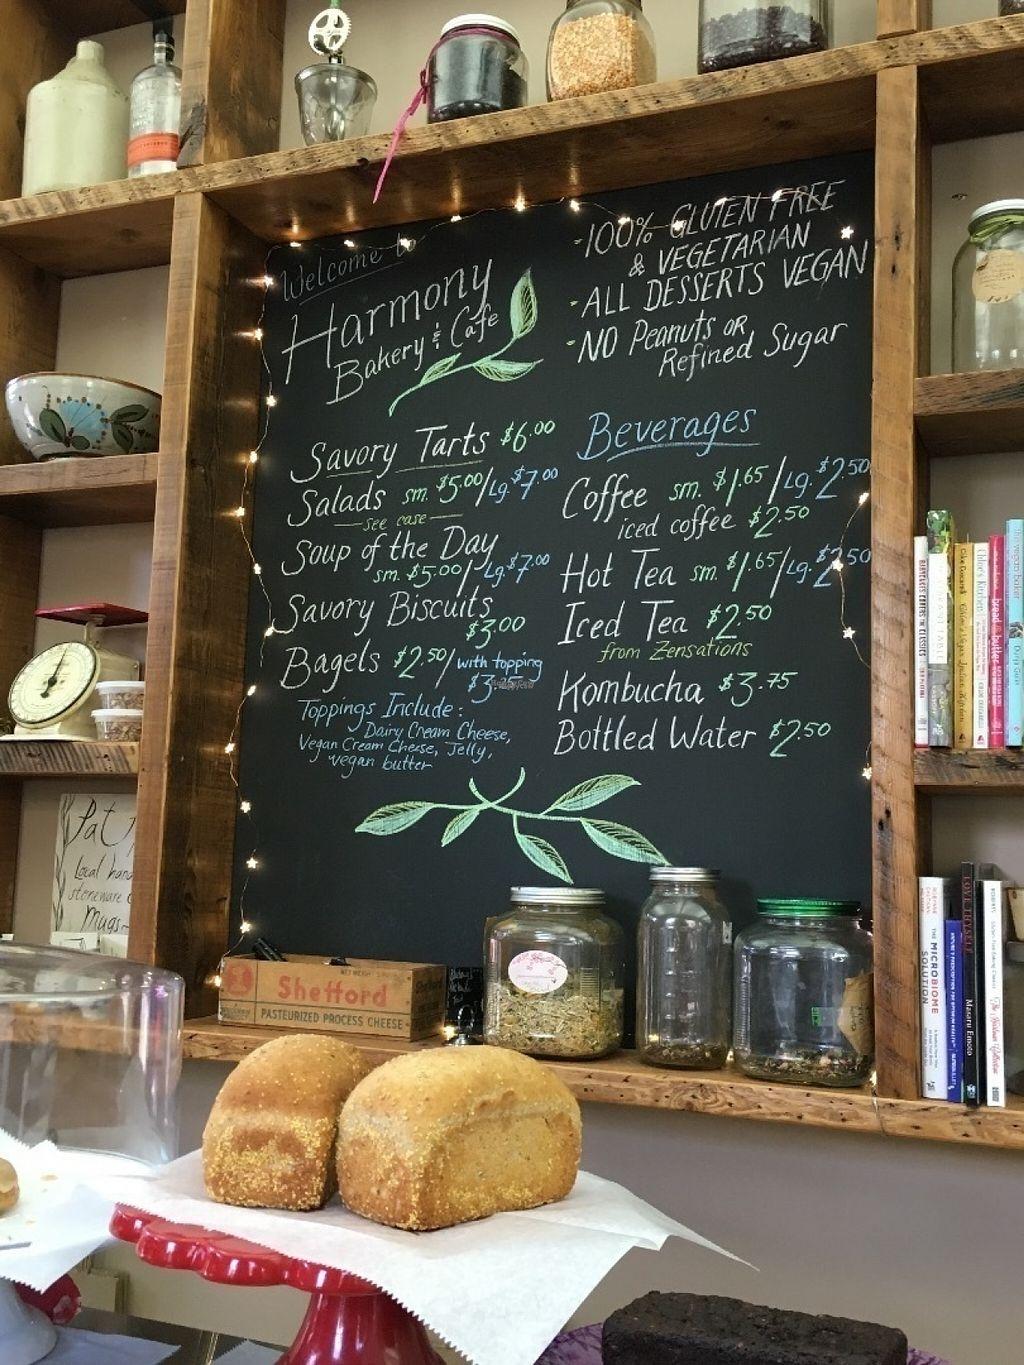 Welcome to
Harmony
Bakery & Cafe
-100% GLUTEN FREE
& VEGETARIAN
-ALL DESSERTS VEGAN
-NO Peanuts OR
Refined Sugar
Savory Tarts $6.00
Salads sm. $5.00/Lg. $7.00
—see case—
Soup of the Day
sm. $5.00/Lg. $7.00
Savory Biscuits
$3.00
Bagels $2.50/with topping
Toppings Include:
Dairy Cream Cheese,
Vegan Cream Cheese, Jelly,
vegan butter
Beverages
Coffee sm. $1.65/Lg. $2.50
iced coffee $2.50
Hot Tea sm. $1.65/Lg. $2.50
Iced Tea $2.50
from Zensations
Kombucha $3.75
Bottled Water $2.50
Local
stoneware
Mugs
Shefford
PASTEURIZED PROCESS CHEESE
Chloe's Kitchen
bread & butter
the vegan baker
THE MICROBIOME SOLUTION
LOVE THYSELF
Masaru Emoto